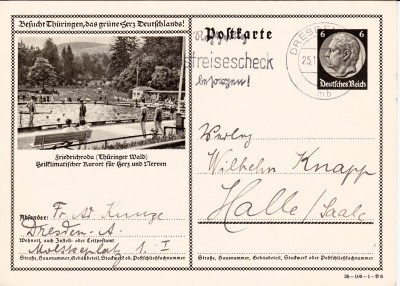 Besucht Thüringen, das grüne Herz Deutschlands!
Postkarte
Reisescheck
besorgen!
DRESDEN
25.1
6 6
Deutsches Reich
Friedrichroda (Thüringer Wald)
Heilklimatischer Kurort für Herz und Nerven
Absender: Fr. Ad Kunze
Dresden-A.
Wohnort, auch Zustell- oder Leitpostamt
Moltkeplatz 1. I
Straße, Hausnummer, Gebäudeteil, Stockwerk od. Postschließfachnummer
Verlag
Wilhelm Knapp
Halle/Saale
Straße, Hausnummer, Gebäudeteil, Stockwerk oder Postschließfachnummer